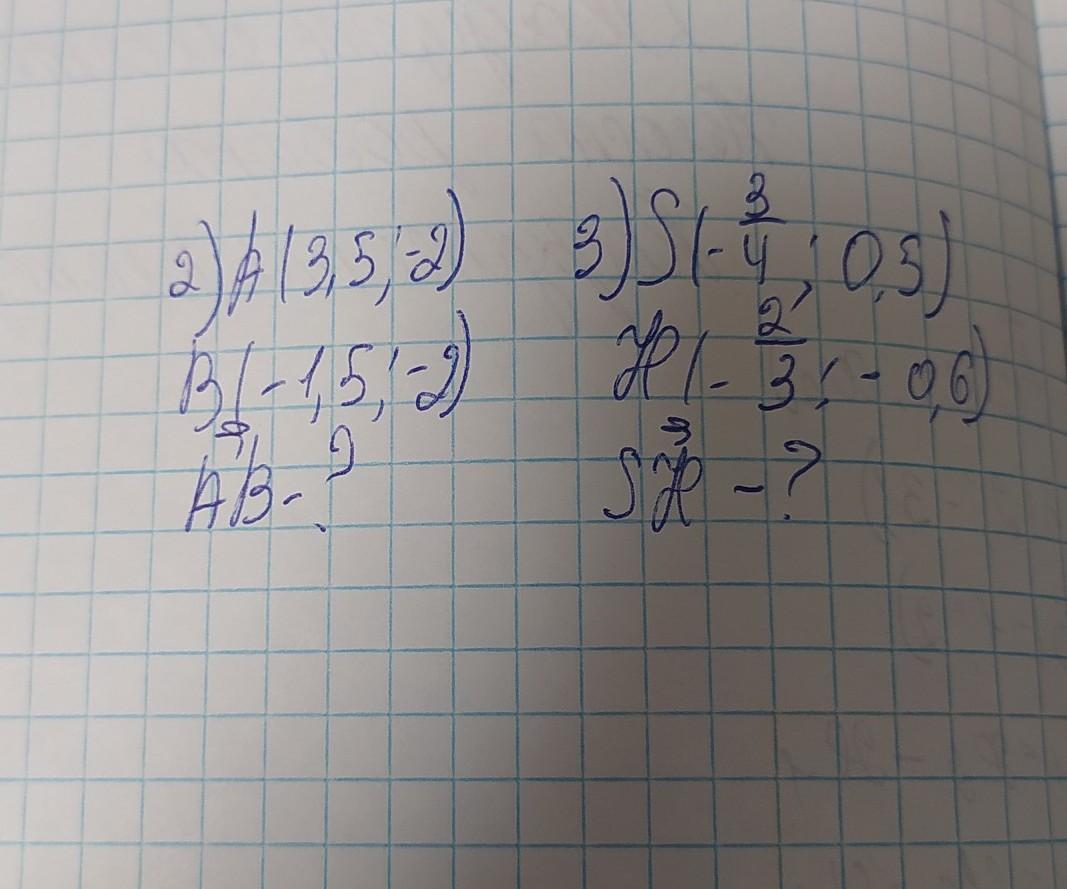 2) A(3,5; -2)
B(-1,5; -2)
AB⃗ - ?
3) S(-3/4; 0,5)
H(-2/3; -0,6)
SH⃗ - ?